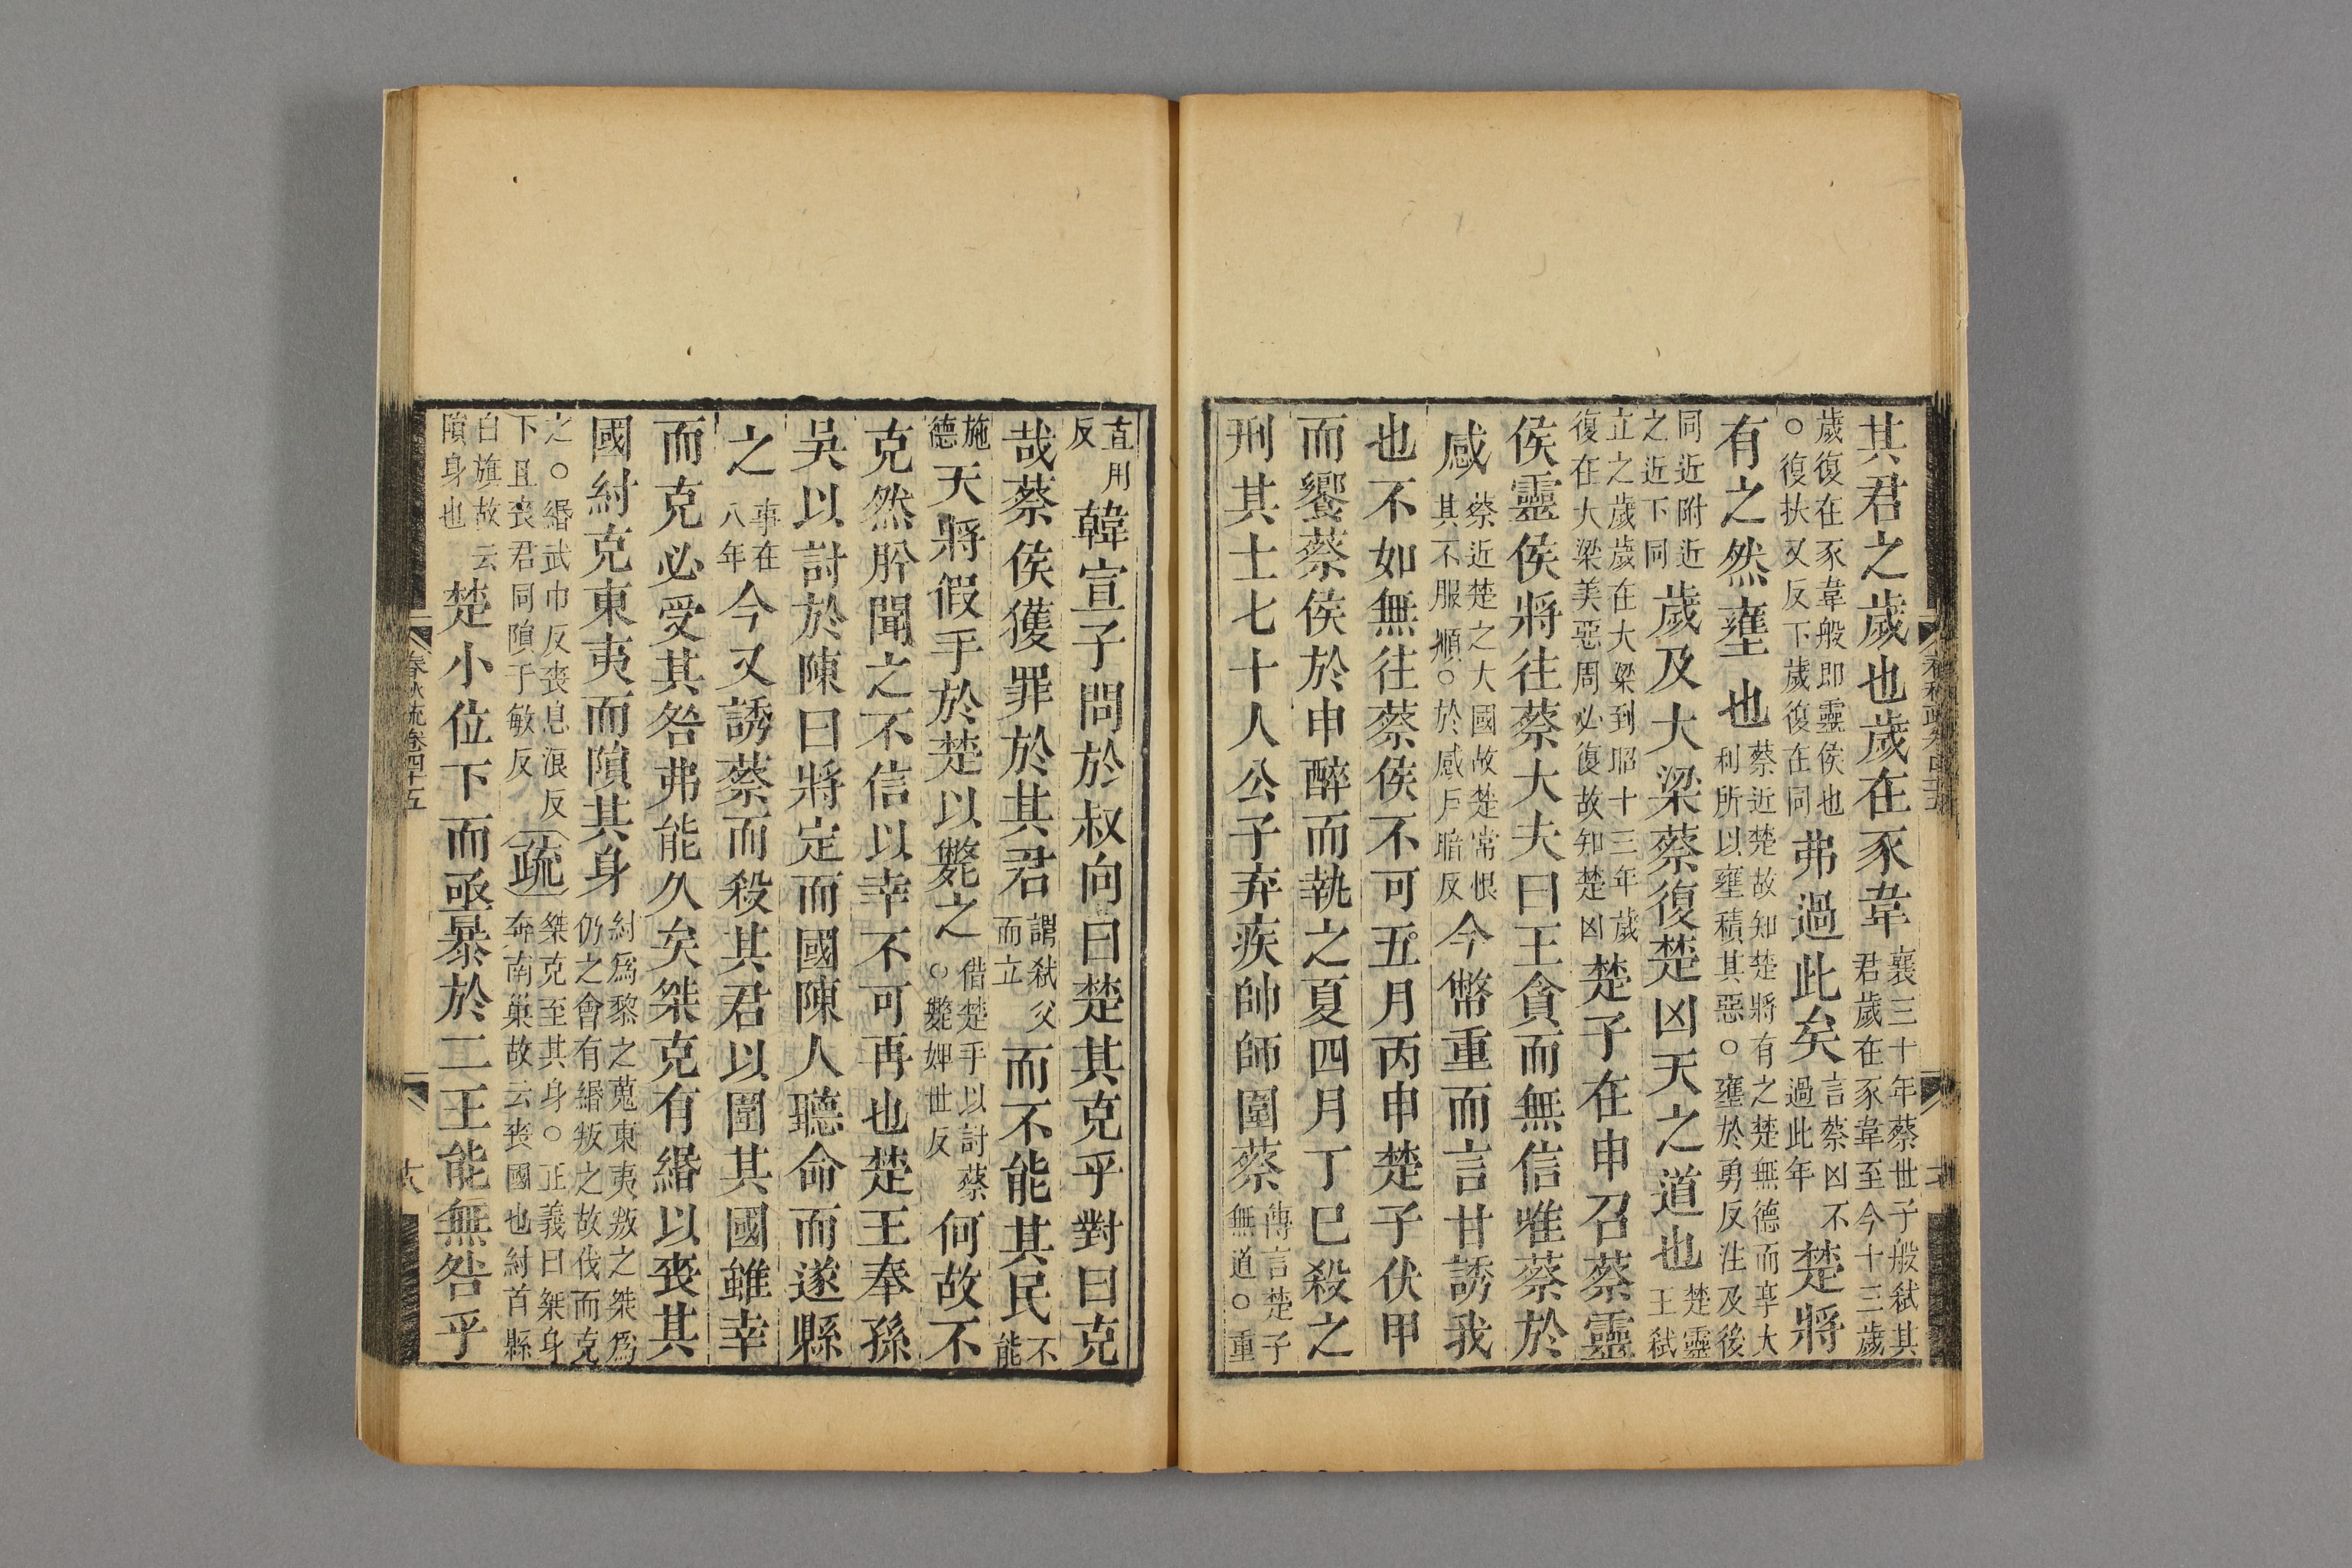 其君之歲也歲在豕韋襄三十年蔡世子般弑其君歲在豕韋至今十三歲
歲復在豕韋般即靈侯也○復扶又反下歲復在同弗過此矣言蔡凶不過此年楚將
有之然壅也蔡近楚故知楚將有之楚無德而享大利所以壅積其惡○壅於勇反注及後
同近附近之近下同歲及大梁蔡復楚凶天之道也楚靈王弑
立之歲歲在大梁到昭十三年歲復在大梁美惡周必復故知楚凶楚子在申召蔡靈
侯靈侯將往蔡大夫曰王貪而無信唯蔡於
感蔡近楚之大國故楚常恨其不服順○於感戶暗反今幣重而言甘誘我
也不如無往蔡侯不可五月丙申楚子伏甲
而饗蔡侯於申醉而執之夏四月丁巳殺之
刑其士七十人公子弃疾帥師圍蔡傳言楚子無道○重
直用反韓宣子問於叔向曰楚其克乎對曰克
哉蔡侯獲罪於其君謂弑父而立而不能其民不能
施德天將假手於楚以斃之借楚手以討蔡○斃婢世反何故不
克然肸聞之不信以幸不可再也楚王奉孫
吳以討於陳曰將定而國陳人聽命而遂縣
之事在八年今又誘蔡而殺其君以圍其國雖幸
而克必受其咎弗能久矣桀克有緡以喪其
國紂克東夷而隕其身紂爲黎之蒐東夷叛之桀爲仍之會有緡叛之故伐而克
之○緡武巾反喪息浪反下且喪君同隕于敏反疏桀克至其身○正義曰桀身奔南巢故云喪國也紂首縣
白旗故云隕身也楚小位下而亟暴於二王能無咎乎
春秋疏卷四十五